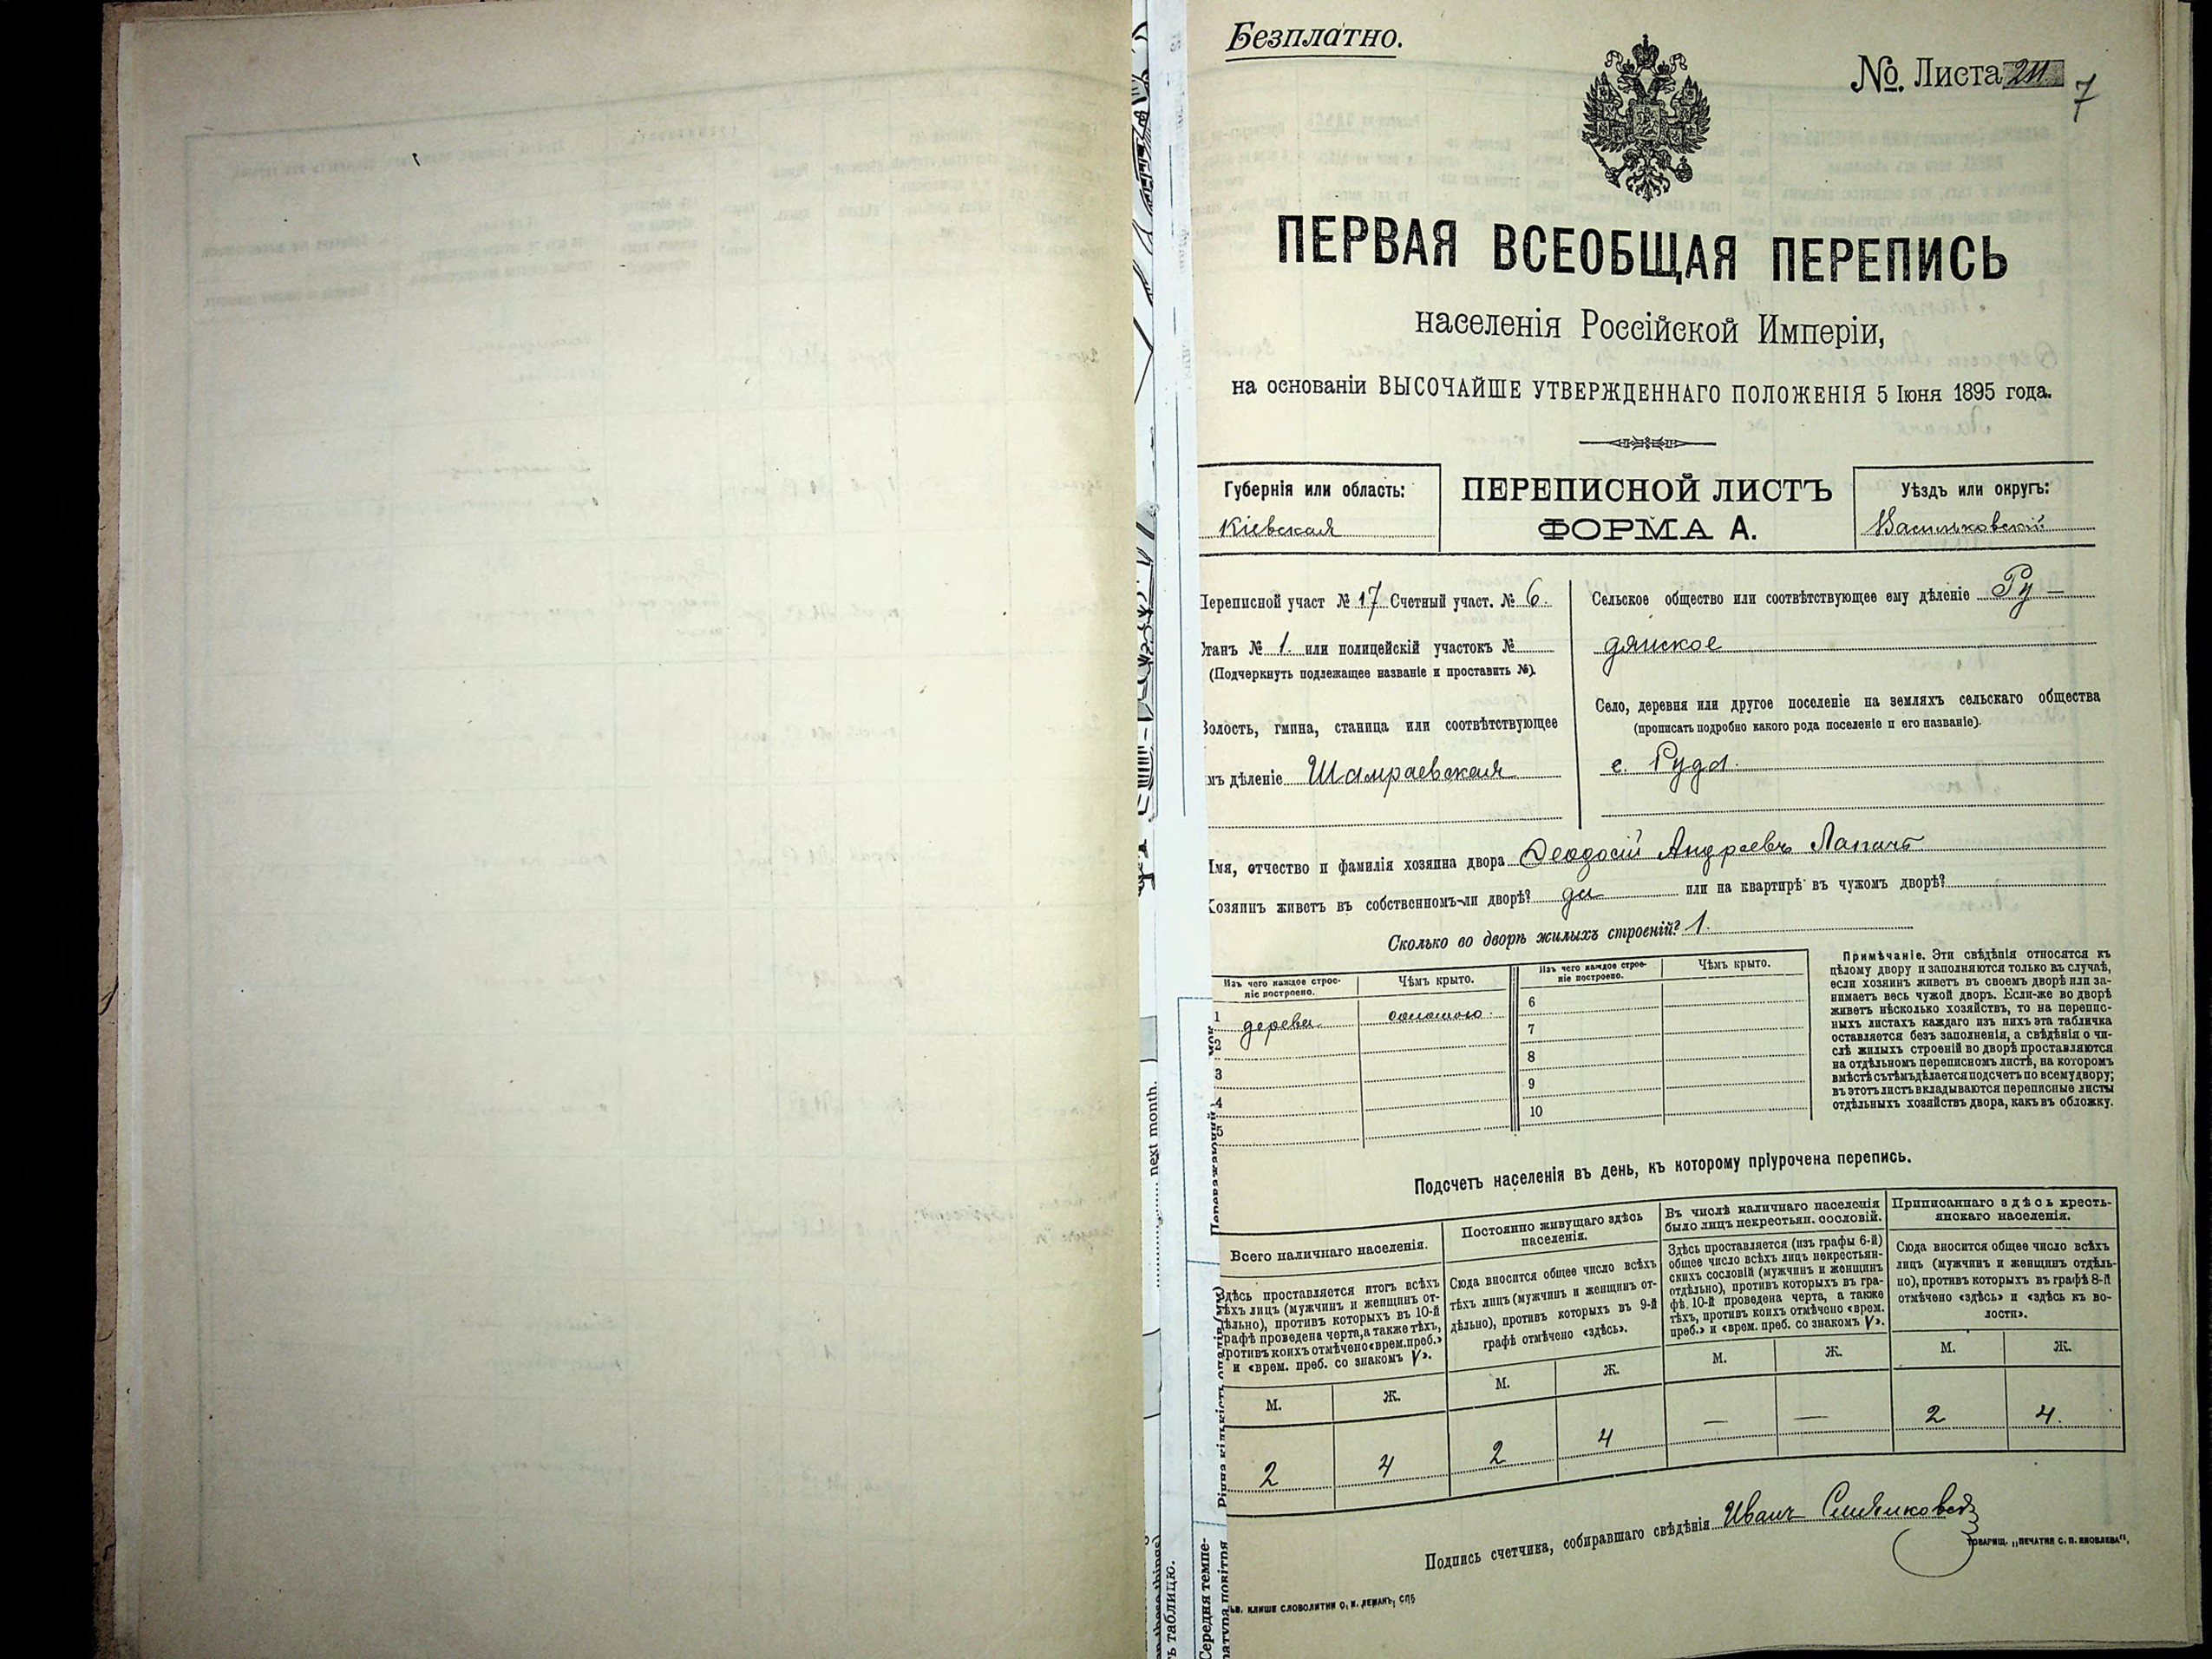 Безплатно.
№. Листа 7
ПЕРВАЯ ВСЕОБЩАЯ ПЕРЕПИСЬ
населенія Россійской Имперіи,
на основаніи ВЫСОЧАЙШЕ УТВЕРЖДЕННАГО ПОЛОЖЕНІЯ 5 Іюня 1895 года.
Губернія или область:
Кіевская
ПЕРЕПИСНОЙ ЛИСТЪ
ФОРМА А.
Уѣздъ или округъ:
Васильковскій
Переписной участ № 17 Счетный участ. № 6.
Станъ № 1. или полицейскій участокъ №
(Подчеркнуть подлежащее названіе и проставить №).
Волость, гмина, станица или соотвѣтствующее
имъ дѣленіе Шамраевская
Сельское общество или соотвѣтствующее ему дѣленіе Ру-
дянское
Село, деревня или другое поселеніе на земляхъ сельскаго общества
(прописать подробно какого рода поселеніе и его названіе).
с. Руда.
Имя, отчество и фамилія хозяина двора Феодосій Андреевъ Лапачъ
Хозяинъ живетъ въ собственномъ-ли дворѣ? да или на квартирѣ въ чужомъ дворѣ?
Сколько во дворѣ жилыхъ строеній? 1.
Изъ чего каждое строе-
ніе построено.
Чѣмъ крыто.
1 дерева соломою.
2
3
4
5
Изъ чего каждое строе-
ніе построено.
Чѣмъ крыто.
6
7
8
9
10
Примѣчаніе. Эти свѣдѣнія относятся къ
цѣлому двору и заполняются только въ случаѣ,
если хозяинъ живетъ въ своемъ дворѣ или за-
нимаетъ весь чужой дворъ. Если-же во дворѣ
живетъ нѣсколько хозяйствъ, то на перепис-
ныхъ листахъ каждаго изъ нихъ эта табличка
оставляется безъ заполненія, а свѣдѣнія о чи-
слѣ жилыхъ строеній во дворѣ проставляются
на отдѣльномъ переписномъ листѣ, на которомъ
вмѣстѣ съ тѣмъ дѣлается подсчетъ по всему двору;
въ этотъ листъ вкладываются переписные листы
отдѣльныхъ хозяйствъ двора, какъ въ обложку.
Подсчетъ населенія въ день, къ которому пріурочена перепись.
Всего наличнаго населенія.
Здѣсь проставляется итогъ всѣхъ
тѣхъ лицъ (мужчинъ и женщинъ от-
дѣльно), противъ которыхъ въ 10-й
графѣ проведена черта, а также тѣхъ,
противъ коихъ отмѣчено «врем. преб.»
и «врем. преб. со знакомъ V».
М. Ж.
2 4
Постоянно живущаго здѣсь
населенія.
Сюда вносится общее число всѣхъ
тѣхъ лицъ (мужчинъ и женщинъ от-
дѣльно), противъ которыхъ въ 9-й
графѣ отмѣчено «здѣсь».
М. Ж.
2 4
Въ числѣ наличнаго населенія
было лицъ некрестьян. сословій.
Здѣсь проставляется (изъ графы 6-й)
общее число всѣхъ лицъ некрестьян-
скихъ сословій (мужчинъ и женщинъ
отдѣльно), противъ которыхъ въ гра-
фѣ 10-й проведена черта, а также
тѣхъ, противъ коихъ отмѣчено «врем.
преб.» и «врем. преб. со знакомъ V».
М. Ж.
— —
Приписаннаго здѣсь кресть-
янскаго населенія.
Сюда вносится общее число всѣхъ
лицъ (мужчинъ и женщинъ отдѣль-
но), противъ которыхъ въ графѣ 8-й
отмѣчено «здѣсь» и «здѣсь къ во-
лости».
М. Ж.
2 4.
Подпись счетчика, собиравшаго свѣдѣнія Иванъ
ТОВАРИЩ. „ПЕЧАТНЯ С. П. ЯКОВЛЕВА",
КЛИШЕ СЛОВОЛИТНИ О. И. ЛЕМАНЪ, СПБ
next month.
таблицю.
Середня темпе-
ратура повітря
Річна кількість опадів (мм)